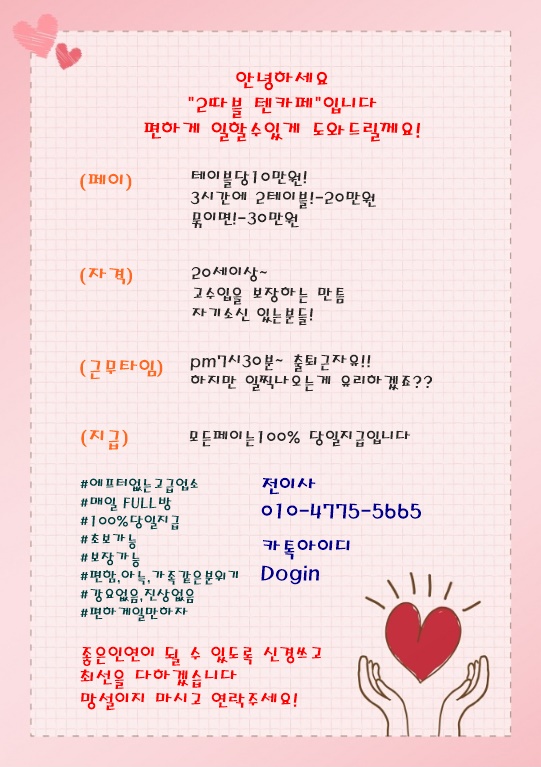 안녕하세요
"2따블 텐카페"입니다
편하게 일할수있게 도와드릴께요!
(페이)
테이블당10만원!
3시간에 2테이블!-20만원
묶이면!-30만원
(자격)
20세이상~
고수입을 보장하는 만틈
자기소신 있는분들!
(근무타임)
pm7시30분~ 출퇴근자유!!
하지만 일찍나오는게 유리하겠죠??
(지급)
모든페이는100% 당일지급입니다
#에프터없는고급업소
#매일 FULL방
#100%당일지급
#초보가능
#보장가능
#편함,아늑,가족같은분위기
#강요없음,진상없음
#편하게일만하자
전이사
010-4775-5665
카톡아이디
Dogin
좋은인연이 될 수 있도록 신경쓰고
최선을 다하겠습니다
망설이지 마시고 연락주세요!